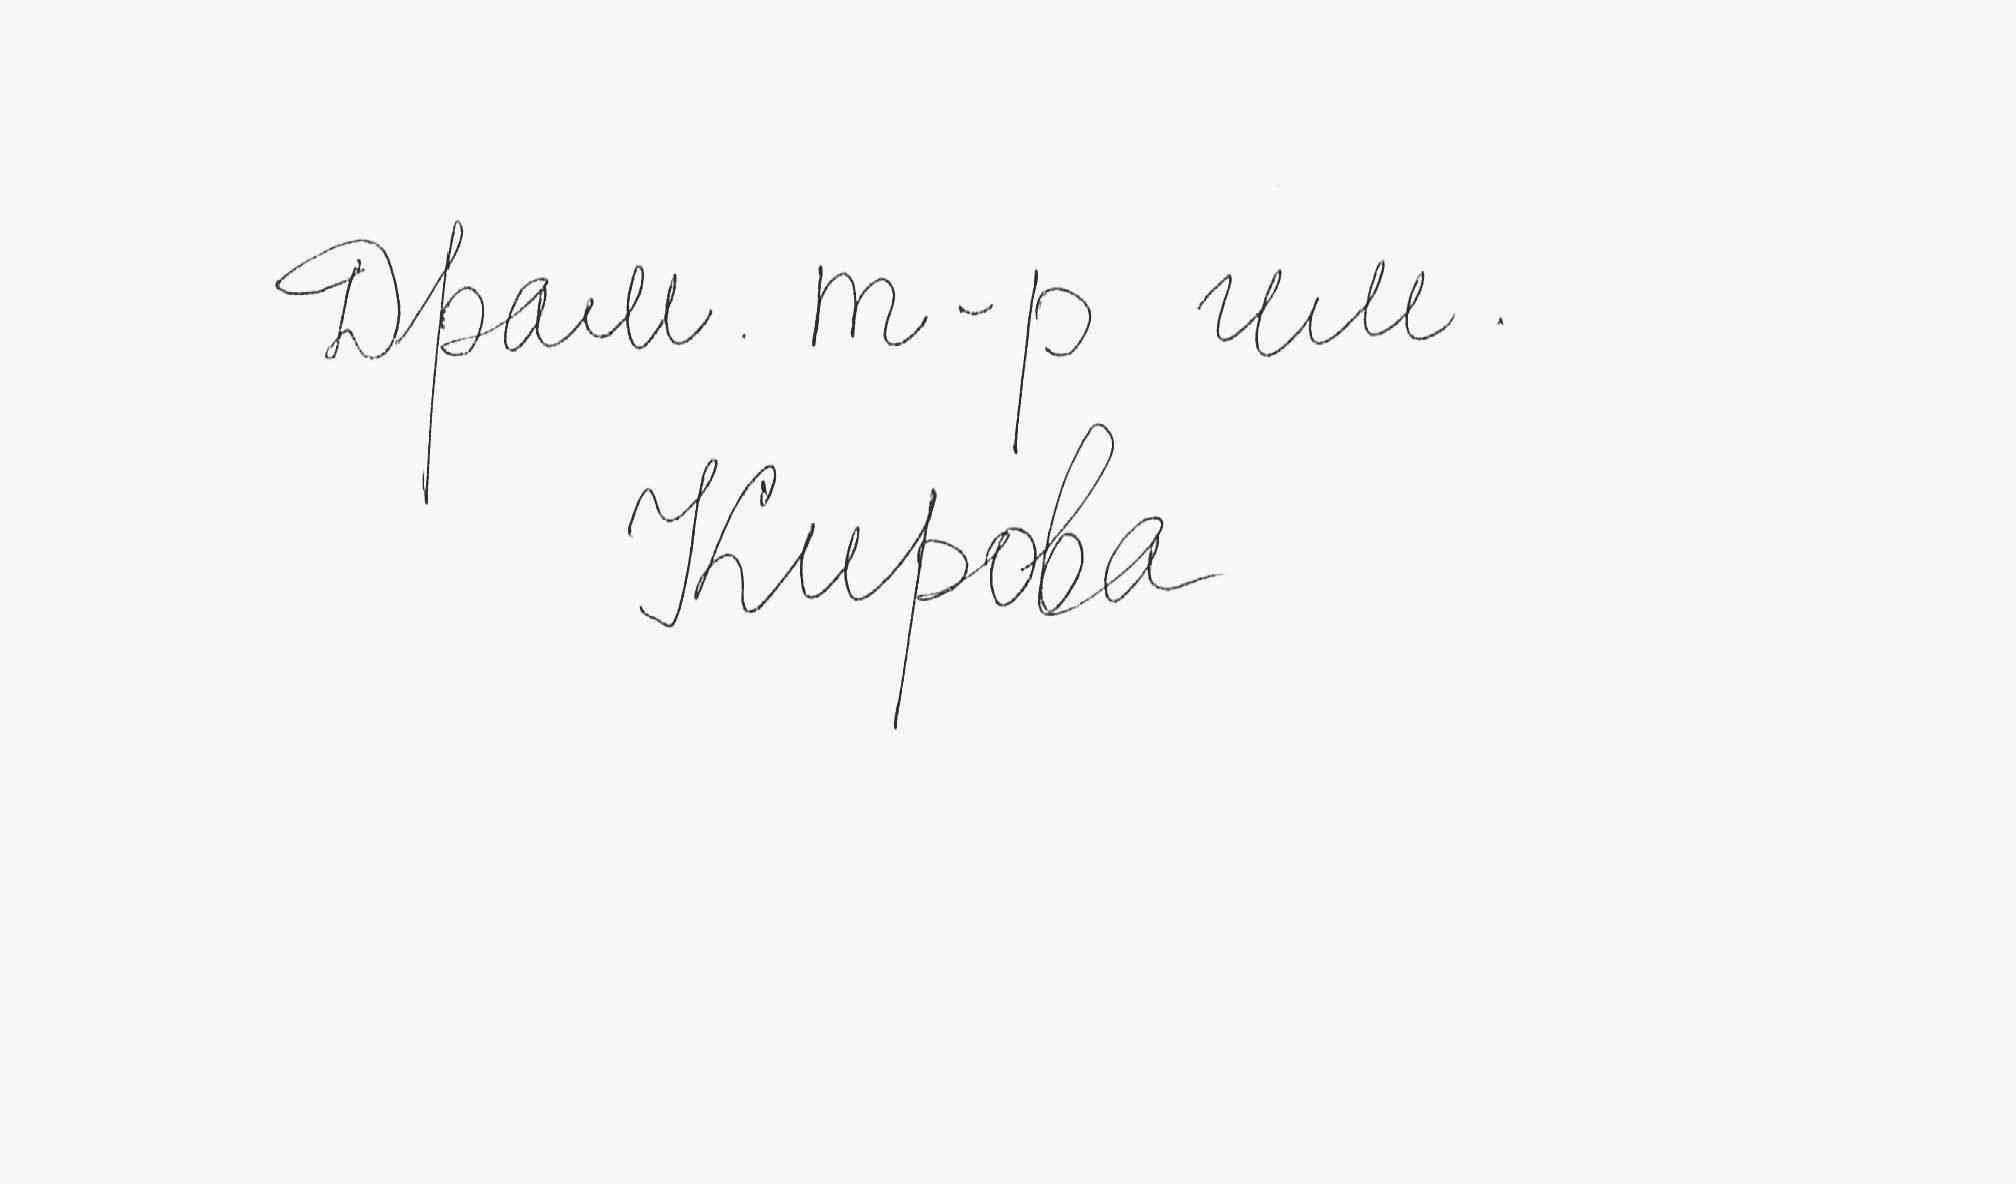 Драм. т-р им.
Кирова